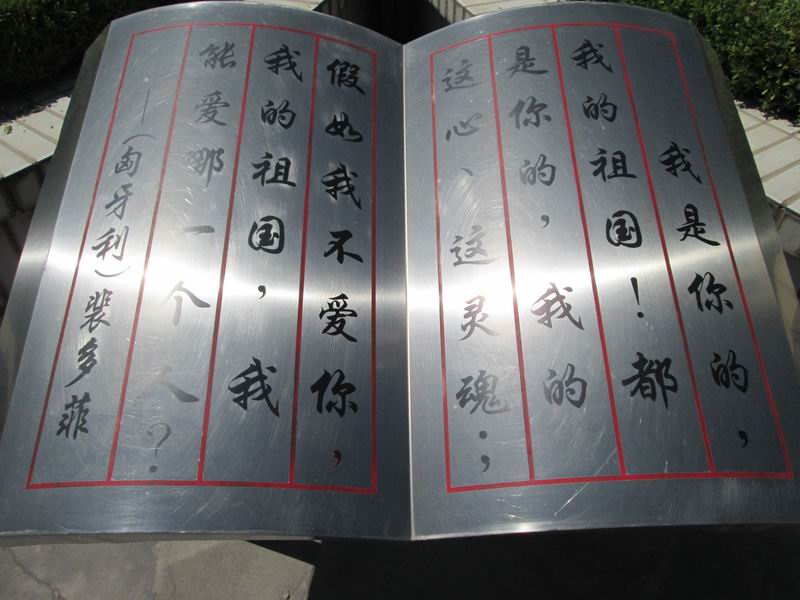 我是你的，
我的祖国！都
是你的，我的
这心、这灵魂；
假如我不爱你，
我的祖国，我
能爱哪一个人？
—（匈牙利）裴多菲